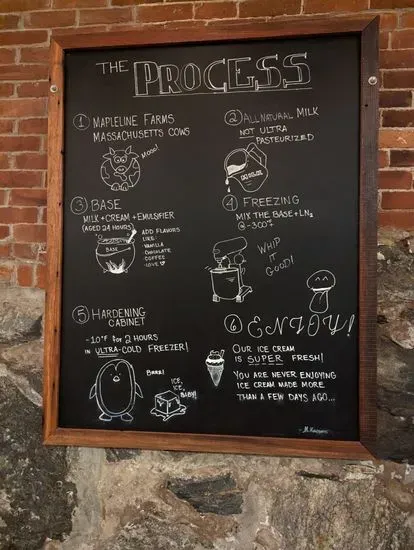 THE PROCESS
① MAPLELINE FARMS
MASSACHUSETTS COWS
MOOO!
② ALL NATURAL MILK
NOT ULTRA
PASTEURIZED
③ BASE
MILK+CREAM+EMULSIFIER
(AGED 24 HOURS)
BASE
ADD FLAVORS
LIKE:
VANILLA
CHOCOLATE
COFFEE
LOVE ♡
④ FREEZING
MIX THE BASE+LN₂
@ -300°F
WHIP
IT
GOOD!
⑤ HARDENING
CABINET
-10°F for 2 HOURS
IN ULTRA-COLD FREEZER!
BRRR!
ICE,
ICE,
BABY!
⑥ ENJOY!
OUR ICE CREAM
IS SUPER FRESH!
YOU ARE NEVER ENJOYING
ICE CREAM MADE MORE
THAN A FEW DAYS AGO...